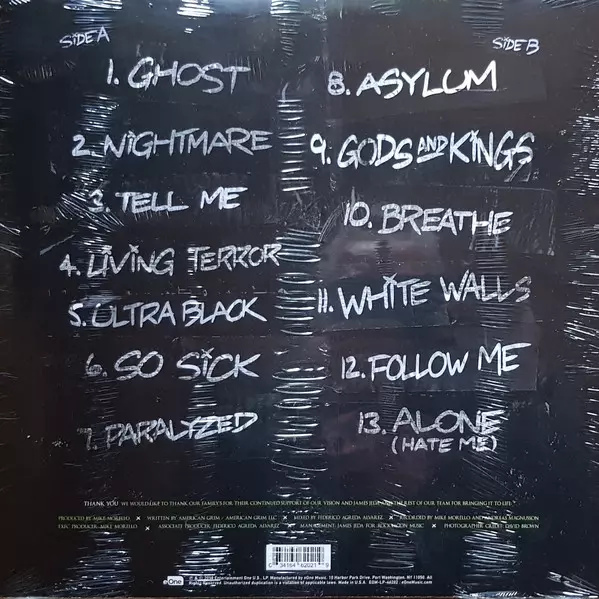 SIDE A
1. GHOST
2. NIGHTMARE
3. TELL ME
4. LIVING TERROR
5. ULTRA BLACK
6. SO SICK
7. PARALYZED
SIDE B
8. ASYLUM
9. GODS AND KINGS
10. BREATHE
11. WHITE WALLS
12. FOLLOW ME
13. ALONE
(HATE ME)
THANK YOU WE WOULD LIKE TO THANK OUR FAMILY'S FOR THEIR CONTINUED SUPPORT OF OUR VISION AND JAMES JEDA AND THE REST OF OUR TEAM FOR BRINGING IT TO LIFE.
PRODUCED BY MIKE MORELLO × WRITTEN BY AMERICAN GRIM - AMERICAN GRIM LLC × MIXED BY FEDERICO AGREDA ALVAREZ × RECORDED BY MIKE MORELLO AND ANDREAS MAGNUSSON
EXEC PRODUCER: MIKE MORELLO × ASSOCIATE PRODUCER: FEDERICO AGREDA ALVAREZ × MANAGEMENT: JAMES JEDA FOR ROCK MOON MUSIC × PHOTOGRAPHER CREDIT: DAVID BROWN
eOne
℗ & © Entertainment One U.S., LP. Manufactured by eOne Music, 10 Harbor Park Drive, Port Washington, NY 11050. All
Rights Reserved. Unauthorized duplication is a violation of applicable laws. Made in U.S.A.